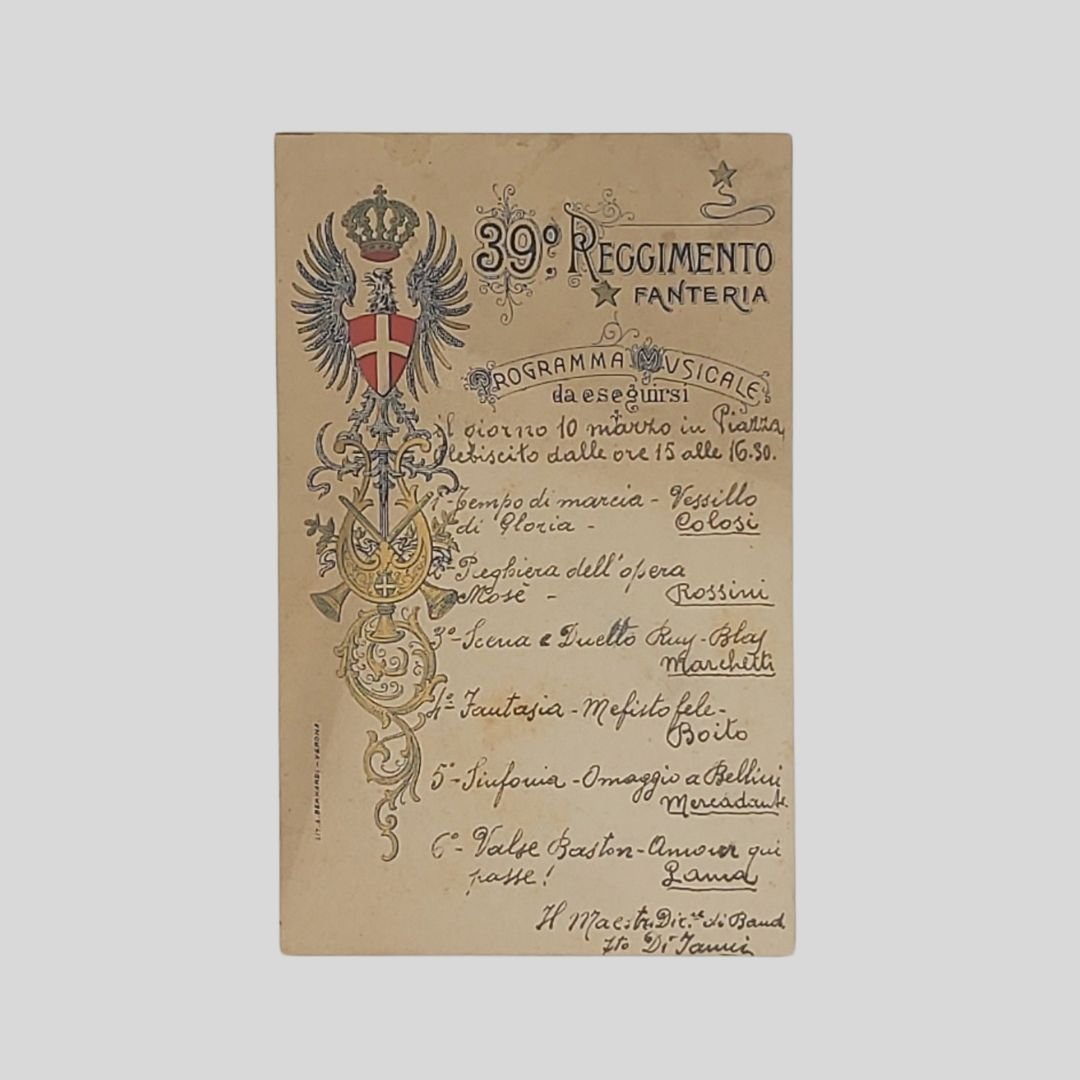 39º. REGGIMENTO
FANTERIA
PROGRAMMA MUSICALE
da eseguirsi
il giorno 10 marzo in Piazza
Plebiscito dalle ore 15 alle 16.30.
1º- Tempo di marcia - Vessillo
di Gloria - Colosi
2º- Preghiera dell'opera
Mosè - Rossini
3º- Scena e Duetto Ruy-Blas
Marchetti
4º- Fantasia - Mefistofele -
Boito
5º- Sinfonia - Omaggio a Bellini
Mercadante
6º- Valse Baston - Amour qui
passe! Lama
Il Maestr. Dir.re di Band
fto Di Janni
LIT. A. BERNARDI - VERONA